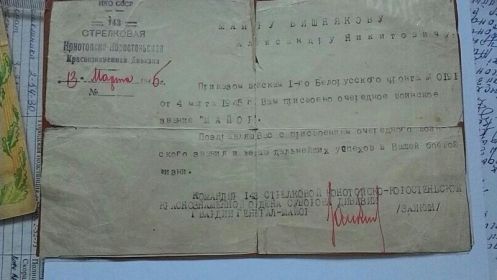 НКО СССР
143
СТРЕЛКОВАЯ
Конотопско-Коростеньская
Краснознаменная Дивизия
12 Марта 1945
№
МАЙОРУ ВИШНЯКОВУ
АЛЕКСАНДРУ НИКИТОВИЧУ.
Приказом войскам I-го Белорусского фронта №
от 4 марта 1945 г. Вам присвоено очередное воинское
звание "МАЙОР".
Поздравляю Вас с присвоением очередного воин-
ского звания и желаю дальнейших успехов в Вашей боевой
жизни.
КОМАНДИР 143 СТРЕЛКОВОЙ КОНОТОПСКО-КОРОСТЕНЬСКОЙ
КРАСНОЗНАМЕННОЙ ОРДЕНА СУВОРОВА ДИВИЗИИ
ГВАРДИИ ГЕНЕРАЛ-МАЙОР /ЗАИКИН/